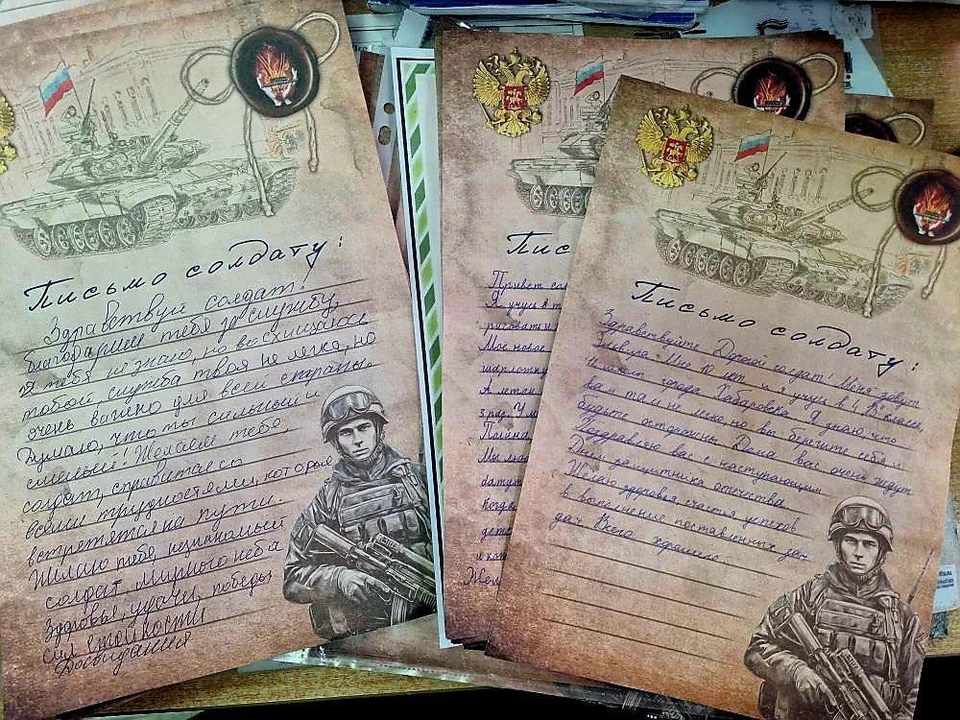 Письмо солдату:
Здравствуй солдат!
благодарше тебя за службу,
я тебя не знаю, но восхищаюсь
тобой, служба твоя не легка, но
очень важно для всей страны.
Думаю, что ты сильный и
смелый! Желаем тебе,
солдат, справится со
всеми трудностями, которые
встретятся на пути.
Желаю тебе, незнакомый
солдат мирного неба
Здоровье, удачи, победы
сил стойкости
Досвидания
Письмо
Привет
Я учусь в
рисовать и
Мое новое
шарлотку
А летом
Полина
Мы
когда
дет
и ко
Жел
Письмо солдату:
Здравствуйте Дорогой солдат! Меня зовут
Эльвира. Мне 10 лет и я учусь в 4 В классе,
школы города Хабаровска. Я знаю, что
вам там не легко, но вы берегите себя и
будьте осторожны Дома вас очень ждут
Поздравляю вас с наступающим
Днём защитника отечества
Желаю здоровья счастья успехов
в выполнение поставленных
дач Всего хорошего.